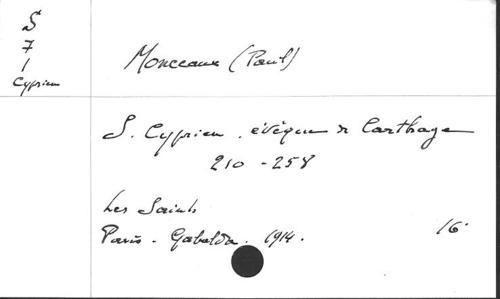 S
7
1
Cyprien
Monceaux (Paul)
S. Cyprien. évêque de Carthage
210 - 258
Les Saints
Paris. Gabalda. 1914. 16°